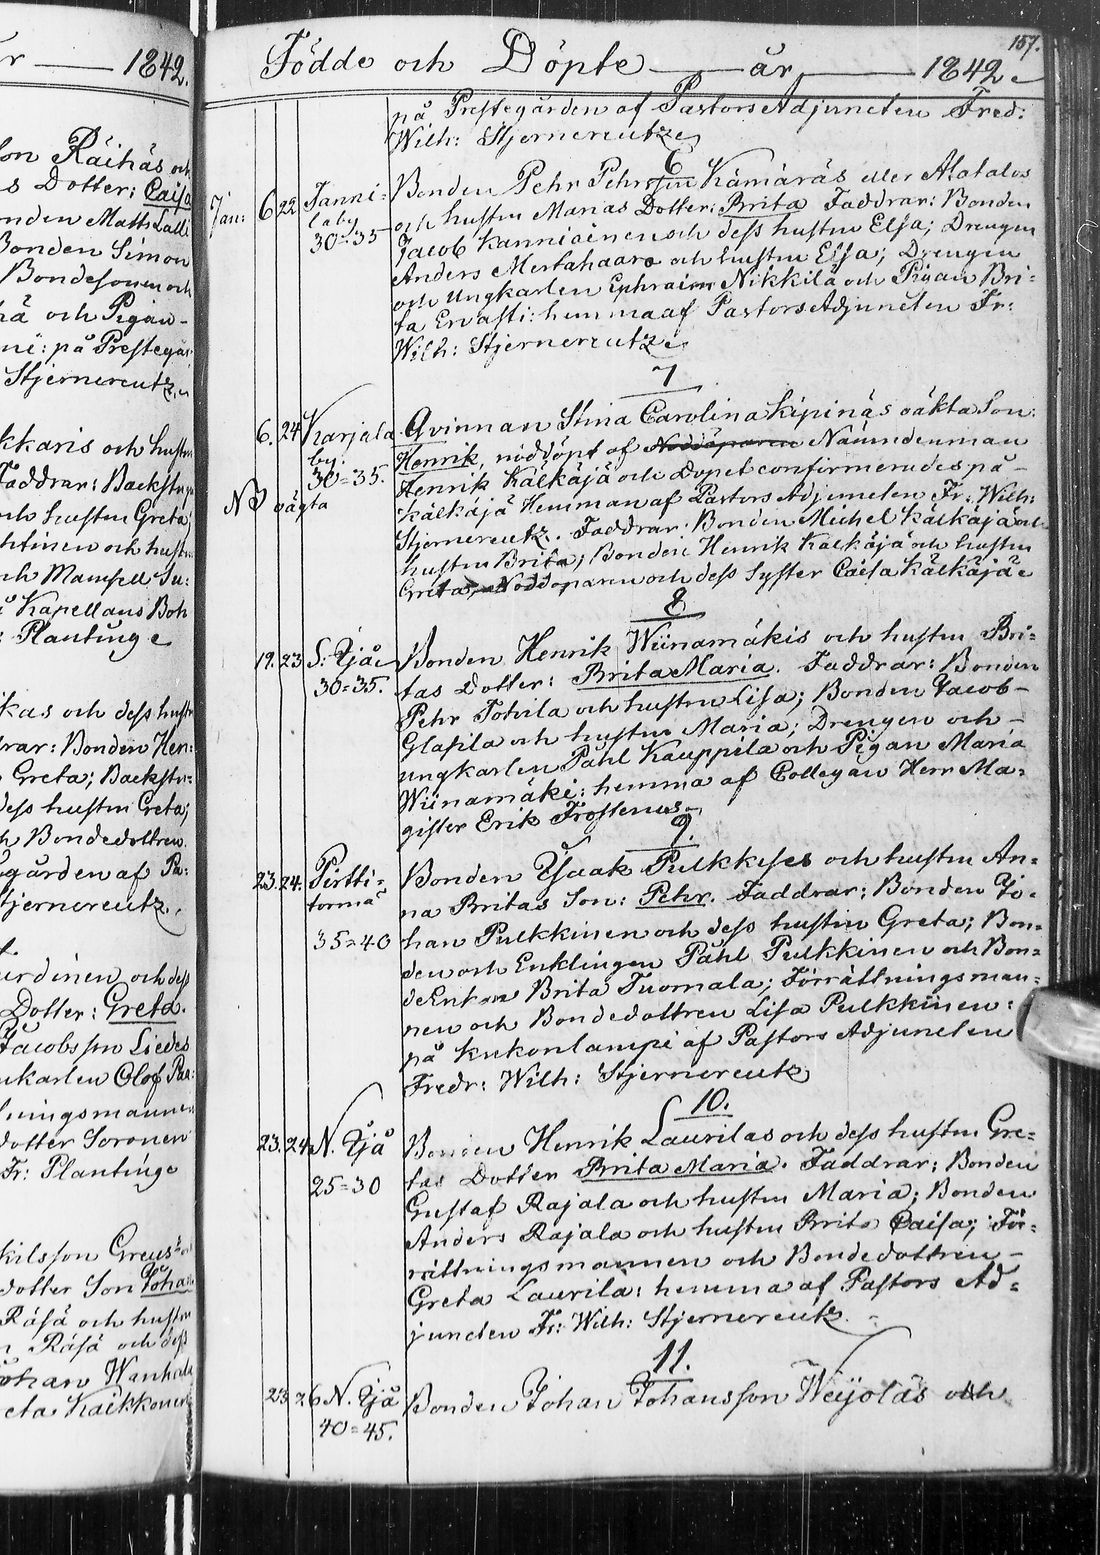 r — 1842.
son Räihäs och
s Dotter; Caisa
onden Matts Lalli
Bonden Simon
Bondesonen och
hä och Pigan-
mi: på Prestegår:
Stjernereutz.
kkaris och hustru
Faddrar: Backstuga
och hustru Greta;
htinen och hustru
och Mamsell Su:
Kapellans Boh
: Plantinge
kas och dess hustru
drar: Bonden Hen:
Greta; Backstu=
dess hustru Greta;
h Bondedottren
gården af Pa:
Stjernereutz.
urdinen och dess
Dotter: Greta.
Jacobsson Liedes
nkarlen Olof Paa:
lningsmannen
dotter Soronen
Fr: Plantinge
kilsson Greus
dotter Son Johan
Räsä och hustru
n Räsä och dess
Johan Wanhala
eta Kaikkonen
157.
Födde och Döpte — år — 1842
på Prestegården af Pastors Adjuncten Fred:
Wilh: Stjernereutz
6
Jan: 6 22 Janni=
laby
30=35
Bonden Pehr Pehrsson Kämäräs eller Matalas
och hustru Marias Dotter: Brita Faddrar: Bonden
Jacob Kanniainen och dess hustru Elsa; Drengen
Anders Mertahaara och hustru Elsa; Drengen
och Ungkarlen Ephraim Nikkilä och Pigan Bri=
ta Ervasti: hemma af Pastors Adjuncten Fr:
Wilh: Stjernereutz
7
6. 24 Karjala
by.
30=35.
N3 oägta
Qvinnan Stina Carolina Kipinäs oäkta Son:
Henrik, nöddöpt af Nöddöparen Nämndeman
Henrik Kälkäjä och Dopet confirmerades på-
Kälkäjä Hemman af Pastors Adjuncten Fr: Wilh:
Stjernereutz. Faddrar: Bonden Michel Kälkäjä och
hustru Brita; Bonden Henrik Kälkäjä och hustru
Greta, Nöddöparen och dess Syster Caisa Kälkäjä
8
19. 23 S: Ijå
30=35.
Bonden Henrik Wiinamäkis och hustru Bri=
tas Dotter: Brita Maria. Faddrar: Bonden
Pehr Tolvila och hustru Lisa; Bonden Jacob-
Glasila och hustru Maria; Drengen och-
ungkarlen Påhl Kauppila och Pigan Maria
Wiinamäki: hemma af Collegan Herr Ma=
gister Erik Frosterus.
9.
23. 24. Pirtti=
torma
35=40
Bonden Isaak Pulkkises och hustru An=
na Britas Son: Pehr. Faddrar: Bonden Jo=
han Pulkkinen och dess hustru Greta; Bon=
den och Enklingen Påhl Pulkkinen och Bon=
de Enkan Brita Tuomala; Förrättningsman=
nen och Bondedottren Lisa Pulkkinen:
på Kukonlampi af Pastors Adjuncten
Fredr: Wilh: Stjernereutz
10.
23. 24 N. Ijå
25=30
Bonden Henrik Laurilas och dess hustru Gre=
tas Dotter Brita Maria. Faddrar; Bonden
Gustaf Rajala och hustru Maria; Bonden
Anders Rajala och hustru Brita Caisa; För=
rättningsmannen och Bondedottren-
Greta Laurila: hemma af Pastors Ad=
juncten Fr: Wilh: Stjernereutz.
11.
23. 26 N. Ijå
40=45.
Bonden Johan Johansson Weijoläs och